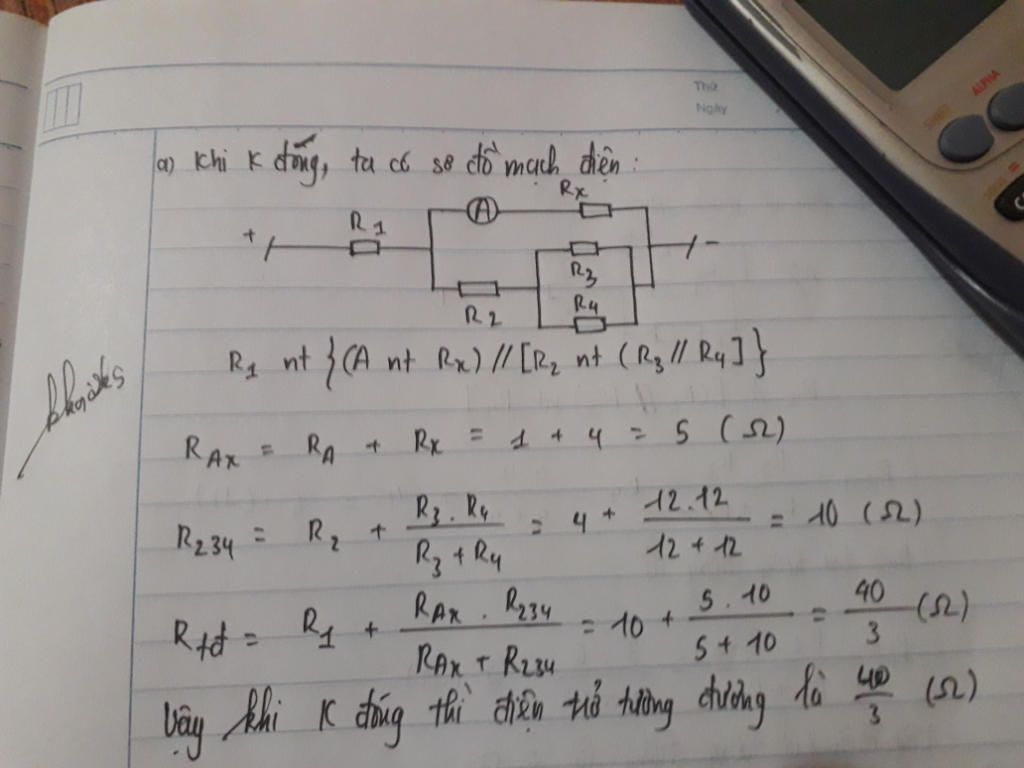 Thứ
Ngày
a) Khi K đóng, ta có sơ đồ mạch điện:
Rx
A
R1
+ -
R3
R2
R4
R1 nt {(A nt Rx) // [R2 nt (R3 // R4]}
RAx = RA + Rx = 1 + 4 = 5 (Ω)
R234 = R2 + R3.R4 / R3+R4 = 4 + 12.12 / 12+12 = 10 (Ω)
Rtđ = R1 + RAx.R234 / RAx+R234 = 10 + 5.10 / 5+10 = 40/3 (Ω)
Vậy khi K đóng thì điện trở tương đương là 40/3 (Ω)
SHIFT
ALPHA